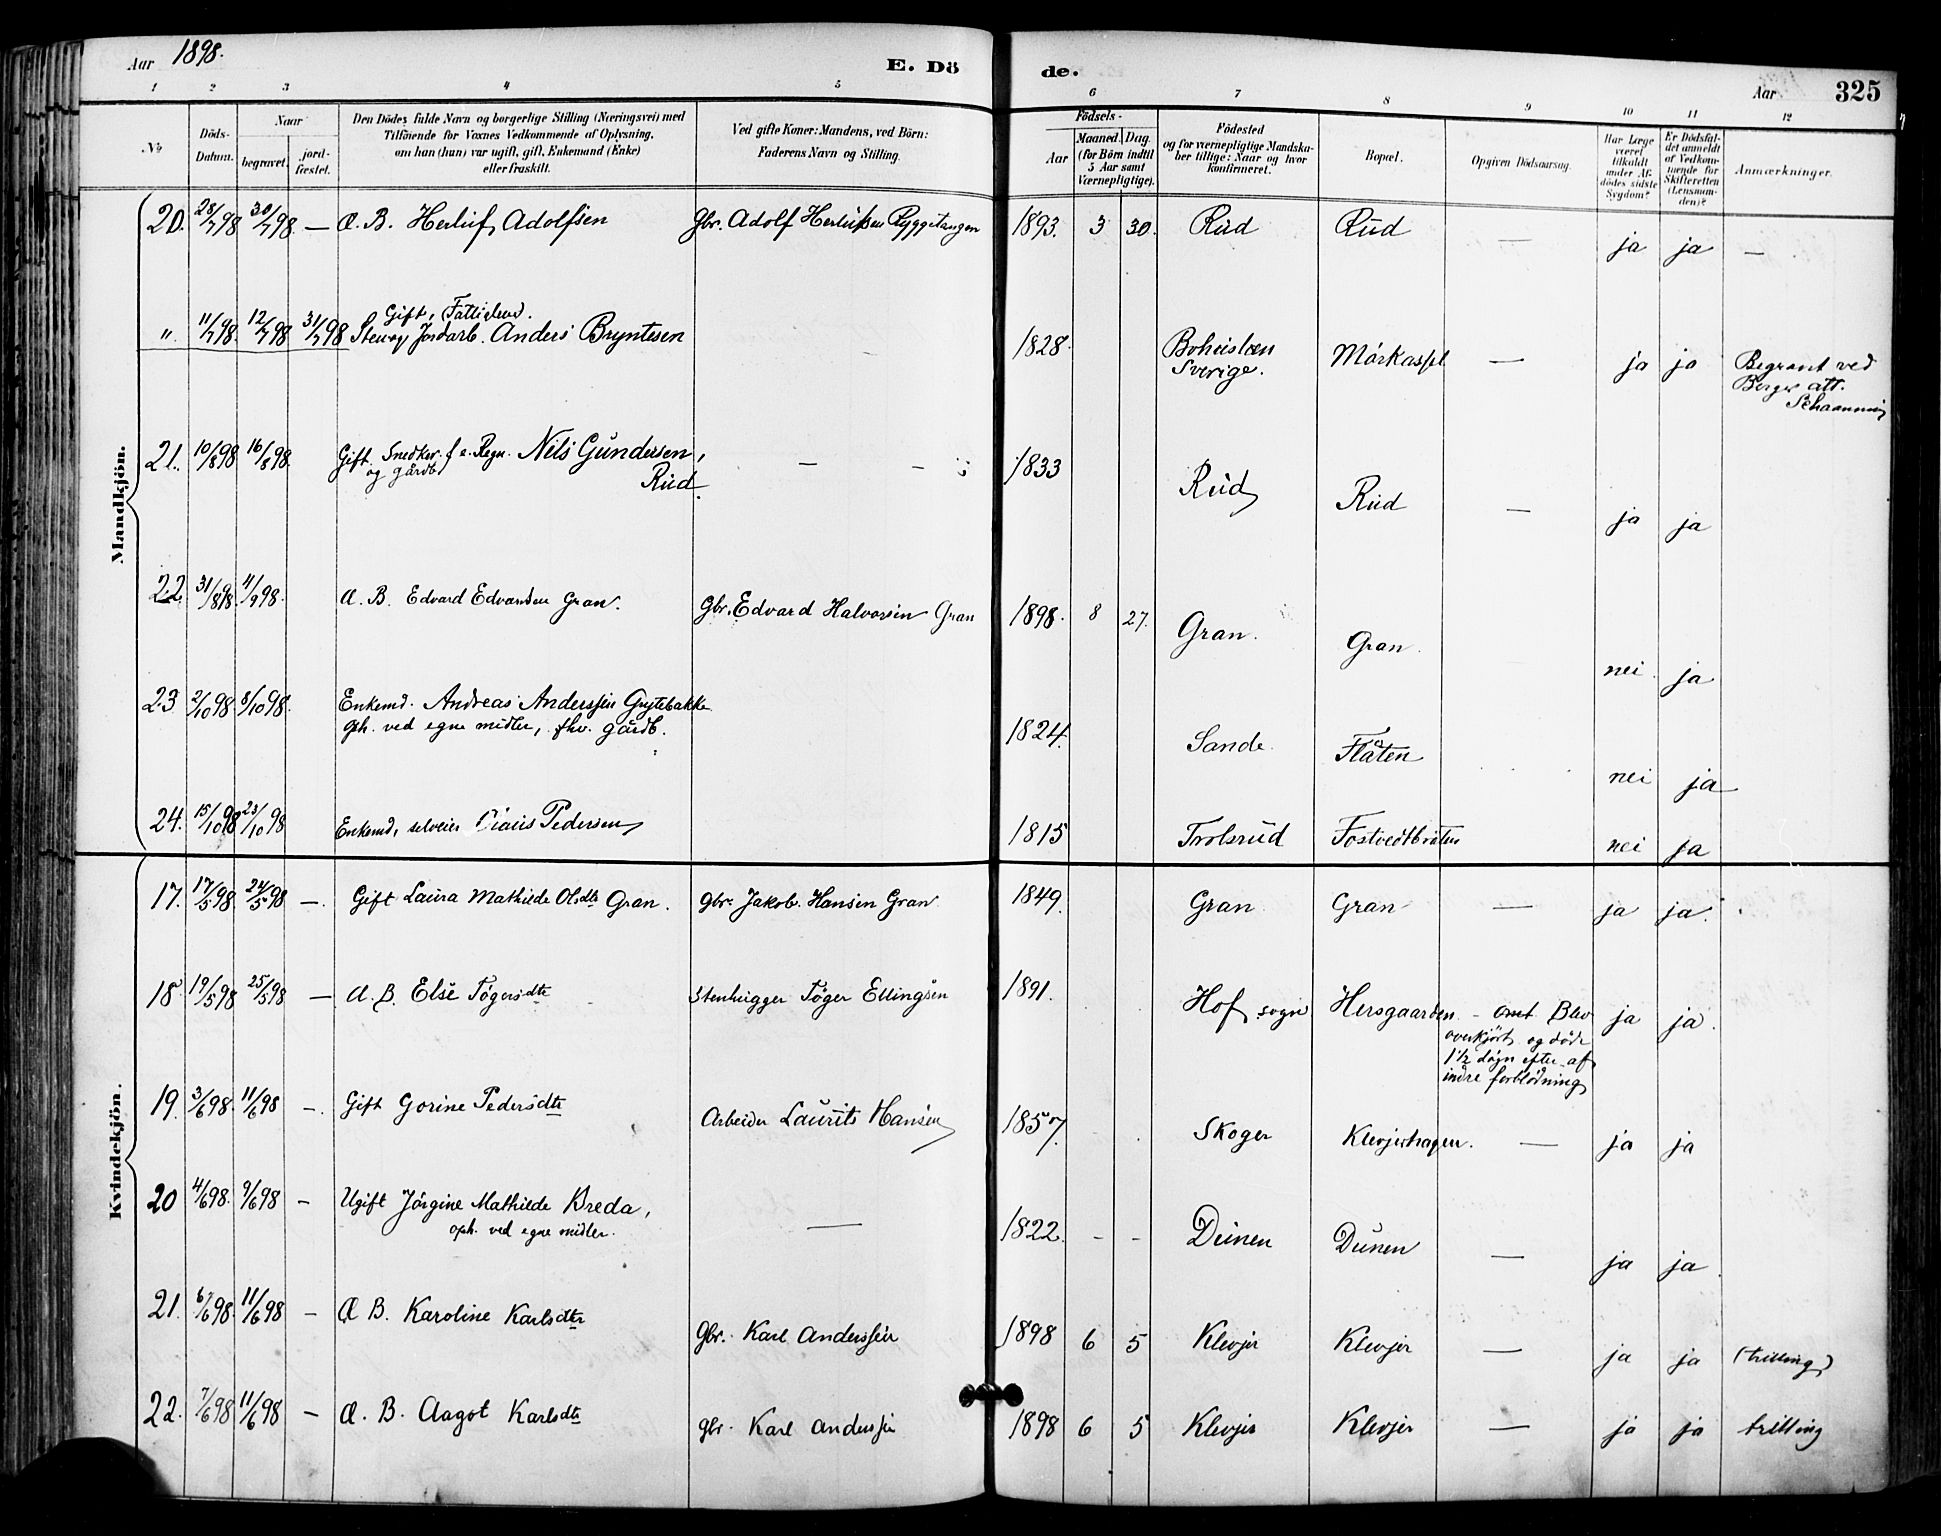 Aar 1898. E. Dö de. Aar 325
1 2 3 4 5 6 7 8 9 10 11 12
No
Döds-
Datum.
Naar
begravet.
jord-
fæstet.
Den Dödes fulde Navn og borgerlige Stilling (Næringsvei) med
Tilföiende for Voxnes Vedkommende af Oplysning,
om han (hun) var ugift, gift, Enkemand (Enke)
eller fraskilt.
Ved gifte Koner: Mandens, ved Börn:
Faderens Navn og Stilling.
Födsels-
Aar
Maaned. Dag.
(for Börn indtil
5 Aar samt
Værnepligtige).
Födested
og for værnepligtige Mandska-
ber tillige: Naar og hvor
Konfirmeret.
Bopæl.
Opgiven Dödsaarsag.
Har Læge
været
tilkaldt
under Af-
dödes sidste
Sygdom?
Er Dödsfal-
det anmeldt
af Vedkom-
mende for
Skifteretten
(Lensman-
den)?
Anmærkninger.
Mandkjön.
20. 28/7 98 30/7 98. — Æ. B. Herluf Adolfsen Gbr. Adolf Herlufsen Ryggetangen 1893. 3 30. Rud Rud — ja ja —
Gift, Fattiglem.
" 11/7 98. 12/7 98 31/7 98 Sten og Jordarb. Anders Bryntesen — 1828. Bohuslæn Mörkassel — ja ja Begravet ved
Sverige. Berger att.
Schaanning
21. 10/8 98 16/8 98. Gift Snedker f. e. Regn. Nils Gundersen, — — 1833 Rud Rud — ja ja
og gårdb. Rud.
22 31/8 98. 4/9 98. Æ. B. Edvard Edvardsen Gran. Gbr. Edvard Halvorsen Gran 1898. 8 27. Gran. Gran. nei. ja
23 2/10 98 8/10 98. Enkemd. Andreas Anderssen Grytebakke 1824. Sande. Flåten nei ja
oph. ved egne midler, fhv. gårdb.
24. 15/10 98 23/10 98 Enkemd, selveier Claus Pedersen 1815 Trolsrud Fostvedtbråten nei ja
Kvindekjön.
17. 17/5 98. 24/5 98 —. Gift Laura Mathilde Olsdtr Gran. Gbr. Jakob Hansen Gran 1849. Gran Gran — ja ja.
18 19/5 98 25/5 98 — Æ. B. Else Tögersdtr Stenhugger Töger Ellingsen 1891. Hof sogn Hersgaarden - Blev ja ja.
overkjört og döde
1 1/2 dögn efter af
indre forblödning
19. 3/6 98. 11/6 98 —. Gift Gorine Pedersdtr Arbeider Laurits Hansen 1857. Skoger Klevjerhagen. — ja ja
20 4/6 98. 9/6 98 — Ugift Jörgine Mathilde Breda, — 1822. - - Dunen Dunen — ja ja
oph. ved egne midler.
21. 6/6 98. 11/6 98 — Æ B. Karoline Karlsdtr Gbr. Karl Anderssen 1898 6 5 Klevjer Klevjer — ja ja (trilling)
22. 7/6 98 11/6 98 — Æ. B. Aagot Karlsdtr Gbr. Karl Anderssen 1898 6 5 Klevjer Klevjer — ja ja trilling